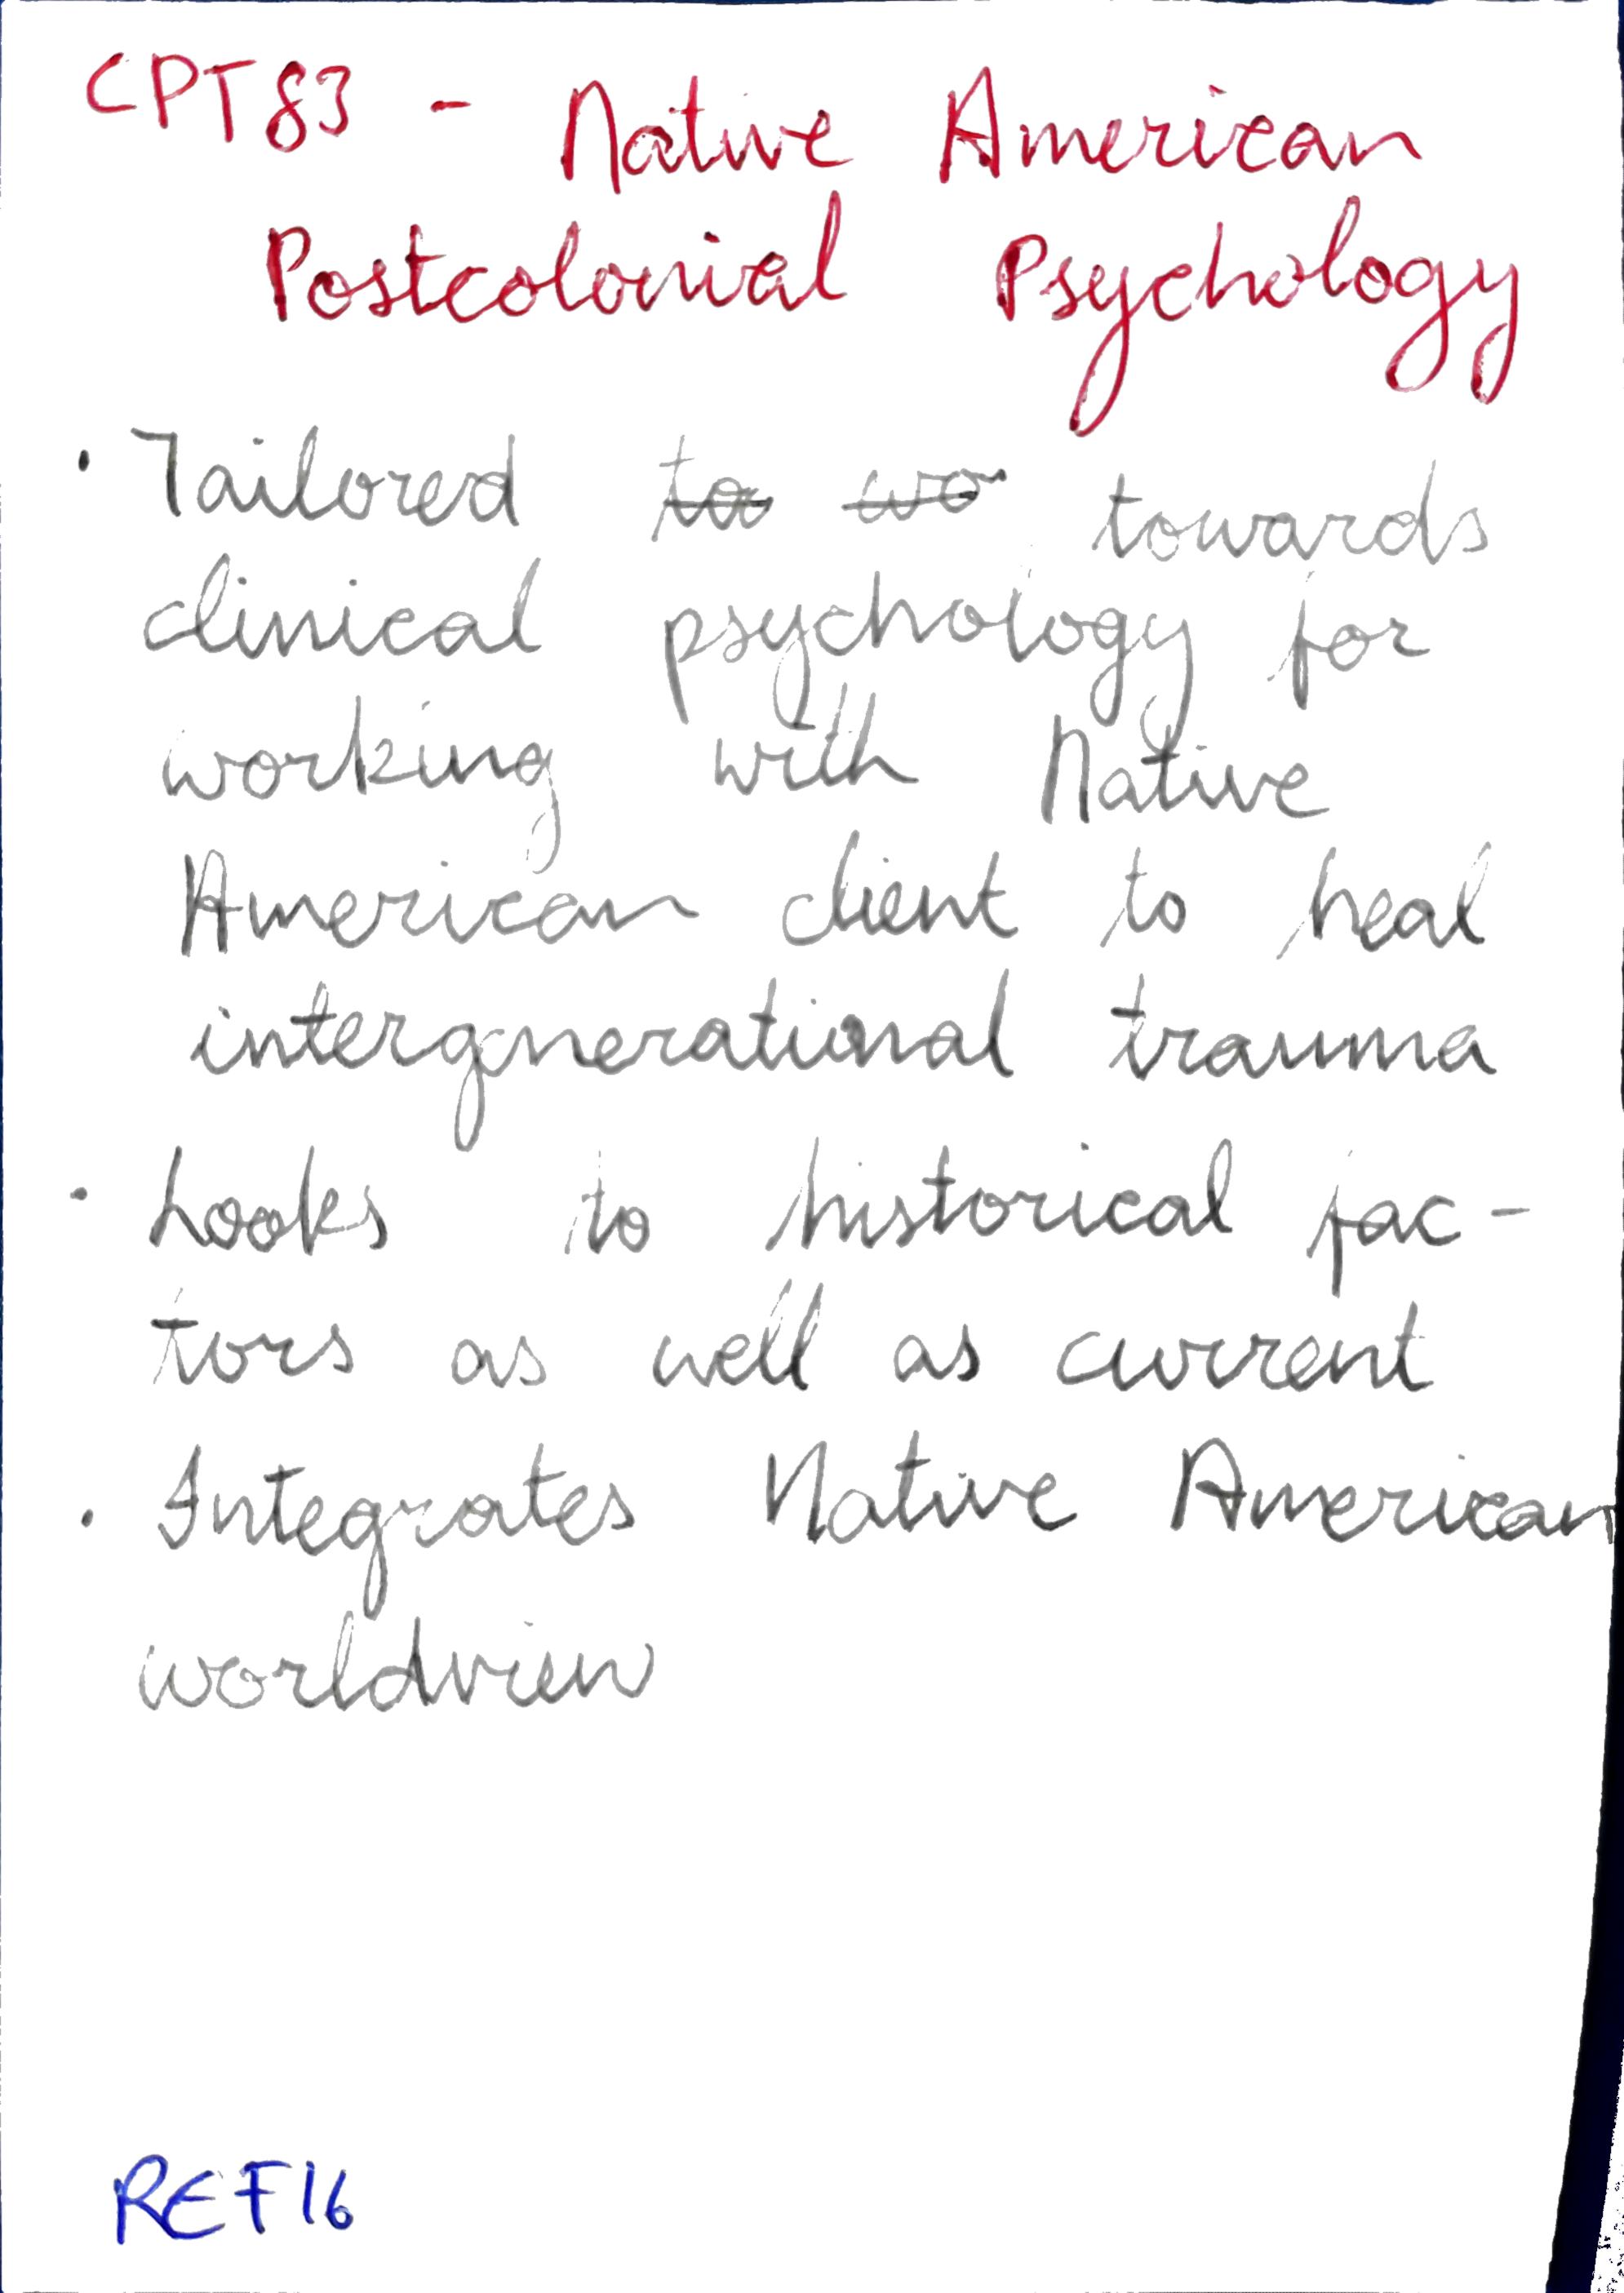 CPT83 - Native American
Postcolonial Psychology
· Tailored to wo towards
clinical psychology for
working with Native
American client to heal
intergnerational trauma
· Looks to historical fac-
tors as well as current
· Integrates Native American
worldview
REF16